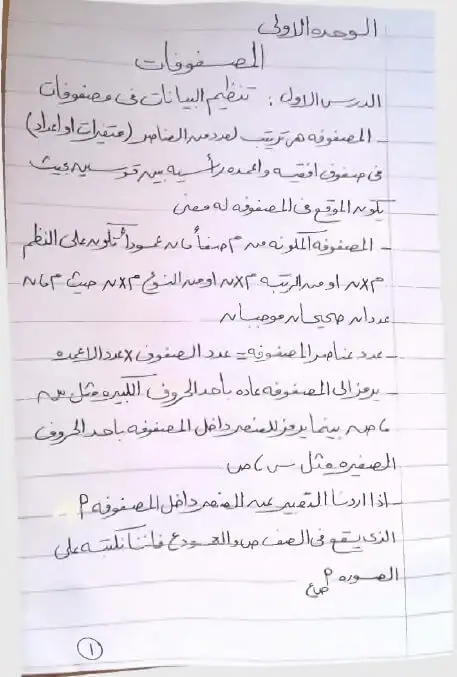 الوحده الاولى
المصفوفات
الدرس الاول : تنظيم البيانات فى مصفوفات
- المصفوفه هى ترتيب لعدد من العناصر (متغيرات او اعداد)
فى صفوف افقيه واعمده رأسيه بين قوسين بحيث
يكون الموقع فى المصفوفه له معنى
- المصفوفه المكونه من م صفاً ، ن عموداً تكون على النظم
م×ن او من الرتبه م×ن او من النوع م×ن حيث م ، ن
عددان صحيحان موجبان
- عدد عناصر المصفوفه = عدد الصفوف × عدد الاعمده
- يرمز الى المصفوفه عاده بأحد الحروف الكبيره مثل س
، ص بينما يرمز للعنصر داخل المصفوفه بأحد الحروف
الصغيره مثل س ، ص
- اذا اردنا التعبير عن العنصر داخل المصفوفه م
الذى يقع فى الصف ص والعمود ع فاننا نكتبه على
الصوره م ص ع
١